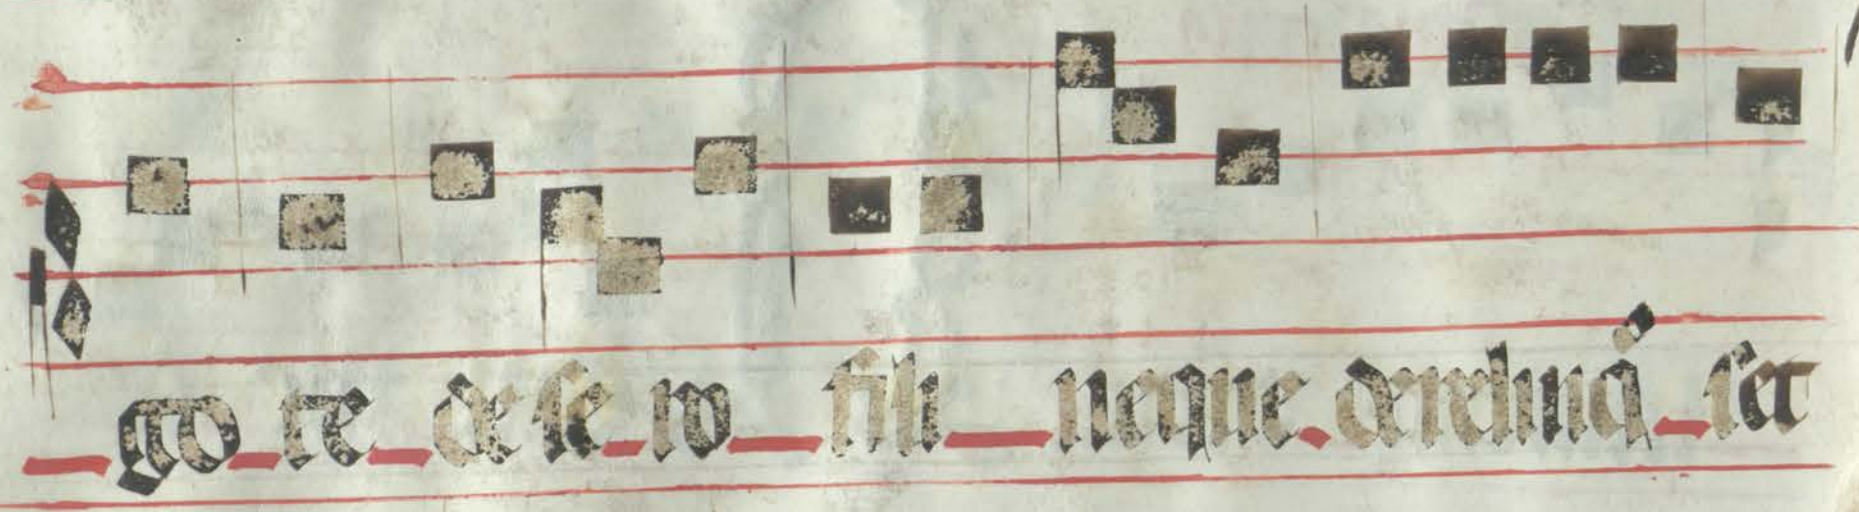 go te de se ro fili neque derelinq̃ set